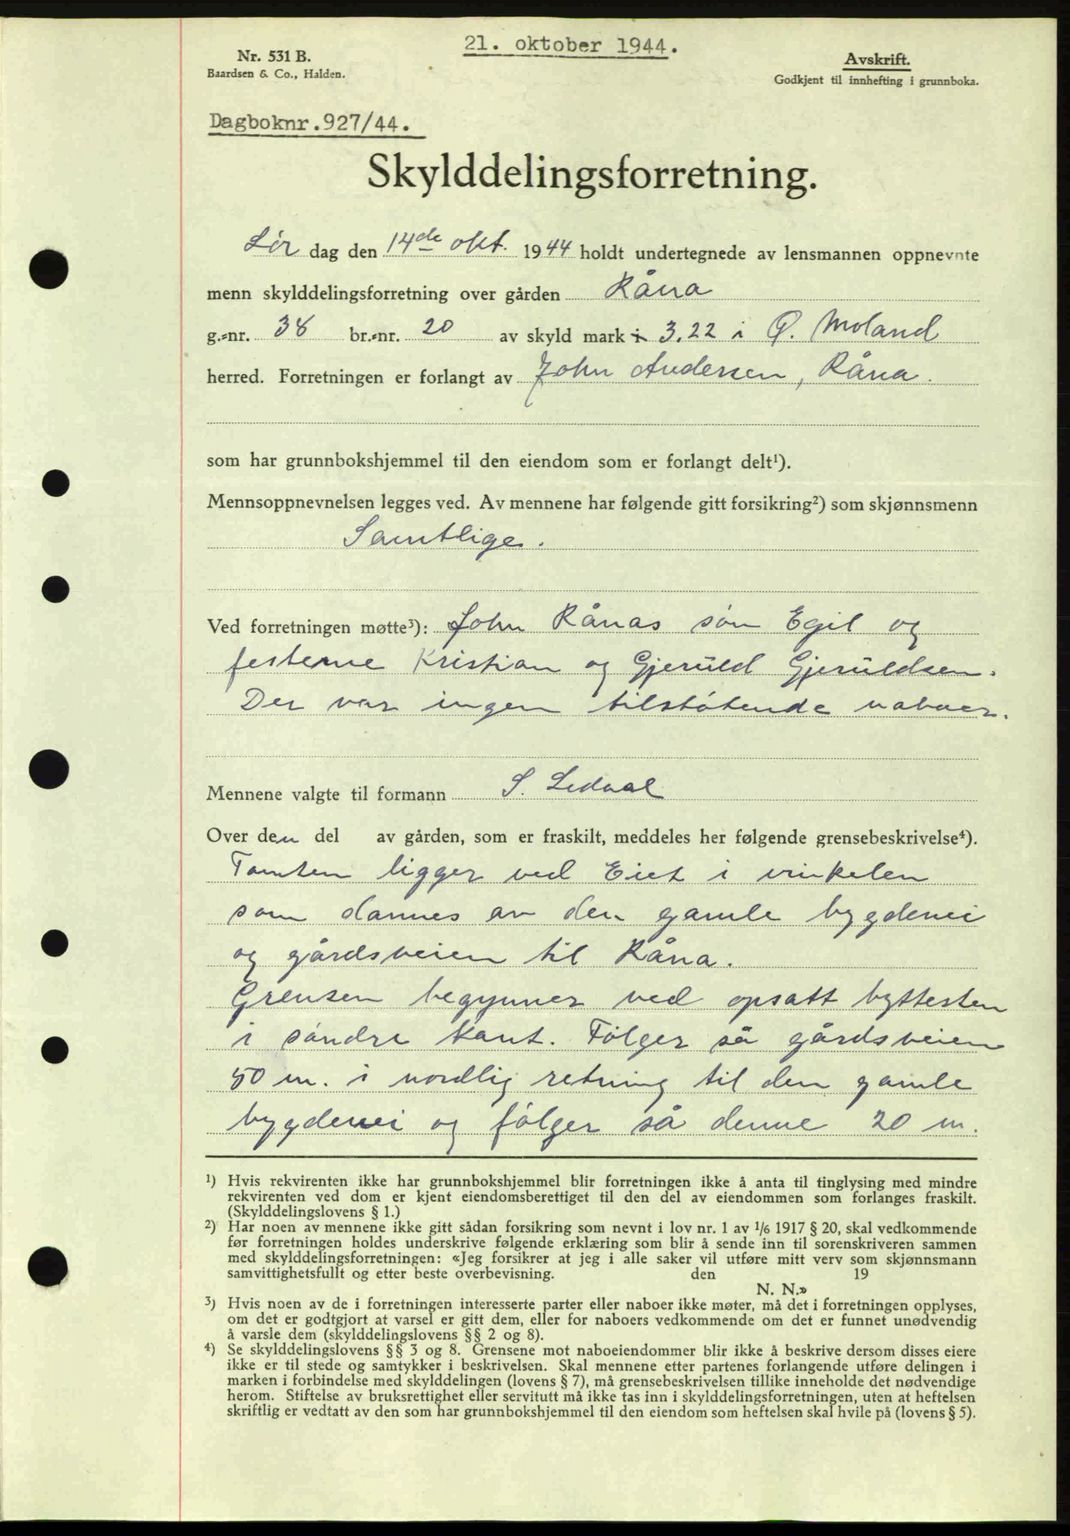 21. oktober 1944.
Nr. 531 B.
Baardsen & Co., Halden.
Avskrift.
Godkjent til innhefting i grunnboka.
Dagboknr.927/44.
Skylddelingsforretning.
Lør dag den 14de okt. 1944 holdt undertegnede av lensmannen oppnevnte
menn skylddelingsforretning over gården Råna
g.-nr. 38 br.-nr. 20 av skyld mark 3,22 i Ø. Moland
herred. Forretningen er forlangt av John Andersen, Råna.
som har grunnbokshjemmel til den eiendom som er forlangt delt¹).
Mennsoppnevnelsen legges ved. Av mennene har følgende gitt forsikring²) som skjønnsmenn
Samtlige.
Ved forretningen møtte³): John Rånas søn Egil og
festerne Kristian og Gjeruld Gjeruldsen.
Der var ingen tilstøtende naboer.
Mennene valgte til formann S. Ledaal
Over den del av gården, som er fraskilt, meddeles her følgende grensebeskrivelse⁴).
Tomten ligger ved Eiet i vinkelen
som dannes av den gamle bygdevei
og gårdsveien til Råna.
Grensen begynner ved opsatt byttesten
i søndre kant. Følger så gårdsveien
50 m. i nordlig retning til den gamle
bygdevei og følger så denne 20 m.
¹) Hvis rekvirenten ikke har grunnbokshjemmel blir forretningen ikke å anta til tinglysing med mindre
rekvirenten ved dom er kjent eiendomsberettiget til den del av eiendommen som forlanges fraskilt.
(Skylddelingslovens § 1.)
²) Har noen av mennene ikke gitt sådan forsikring som nevnt i lov nr. 1 av 1/6 1917 § 20, skal vedkommende
før forretningen holdes underskrive følgende erklæring som blir å sende inn til sorenskriveren sammen
med skylddelingsforretningen: «Jeg forsikrer at jeg i alle saker vil utføre mitt verv som skjønnsmann
samvittighetsfullt og etter beste overbevisning. den 19
N. N.»
³) Hvis noen av de i forretningen interesserte parter eller naboer ikke møter, må det i forretningen opplyses,
om det er godtgjort at varsel er gitt dem, eller for naboers vedkommende om det er funnet unødvendig
å varsle dem (skylddelingslovens §§ 2 og 8).
⁴) Se skylddelingslovens §§ 3 og 8. Grensene mot naboeiendommer blir ikke å beskrive dersom disses eiere
ikke er til stede og samtykker i beskrivelsen. Skal mennene etter partenes forlangende utføre delingen i
marken i forbindelse med skylddelingen (lovens § 7), må grensebeskrivelsen tillike inneholde det nødvendige
herom. Stiftelse av bruksrettighet eller servitutt må ikke tas inn i skylddelingsforretningen, uten at heftelsen
skriftlig er vedtatt av den som har grunnbokshjemmel til den eiendom som heftelsen skal hvile på (lovens § 5).